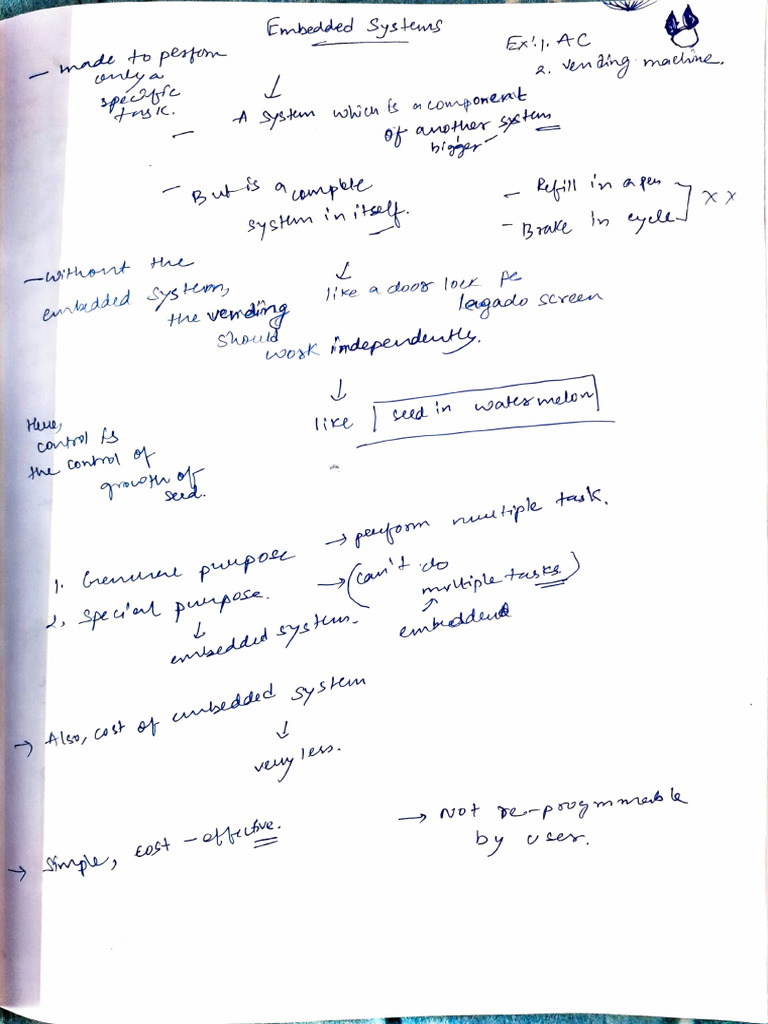 Embedded Systems
Ex:1. AC
2. vending machine.
- made to perform
only a
specific
task.
↓
- A system which is a component
of another system
bigger
- But is a complete
system in itself.
- Refill in a pen
- Brake in cycle ] X X
- without the
embedded system,
the vending
should
work independently.
↓
like a door lock pe
lagado screen
↓
like seed in watermelon
Here,
control is
the control of
growth of
seed.
1. General purpose → perform multiple task.
2. Special purpose. → (can't do
multiple tasks)
↓
embedded system.
↑
embedded
→ Also, cost of embedded system
↓
very less.
→ Simple, cost-effective.
→ Not re-programmable
by user.